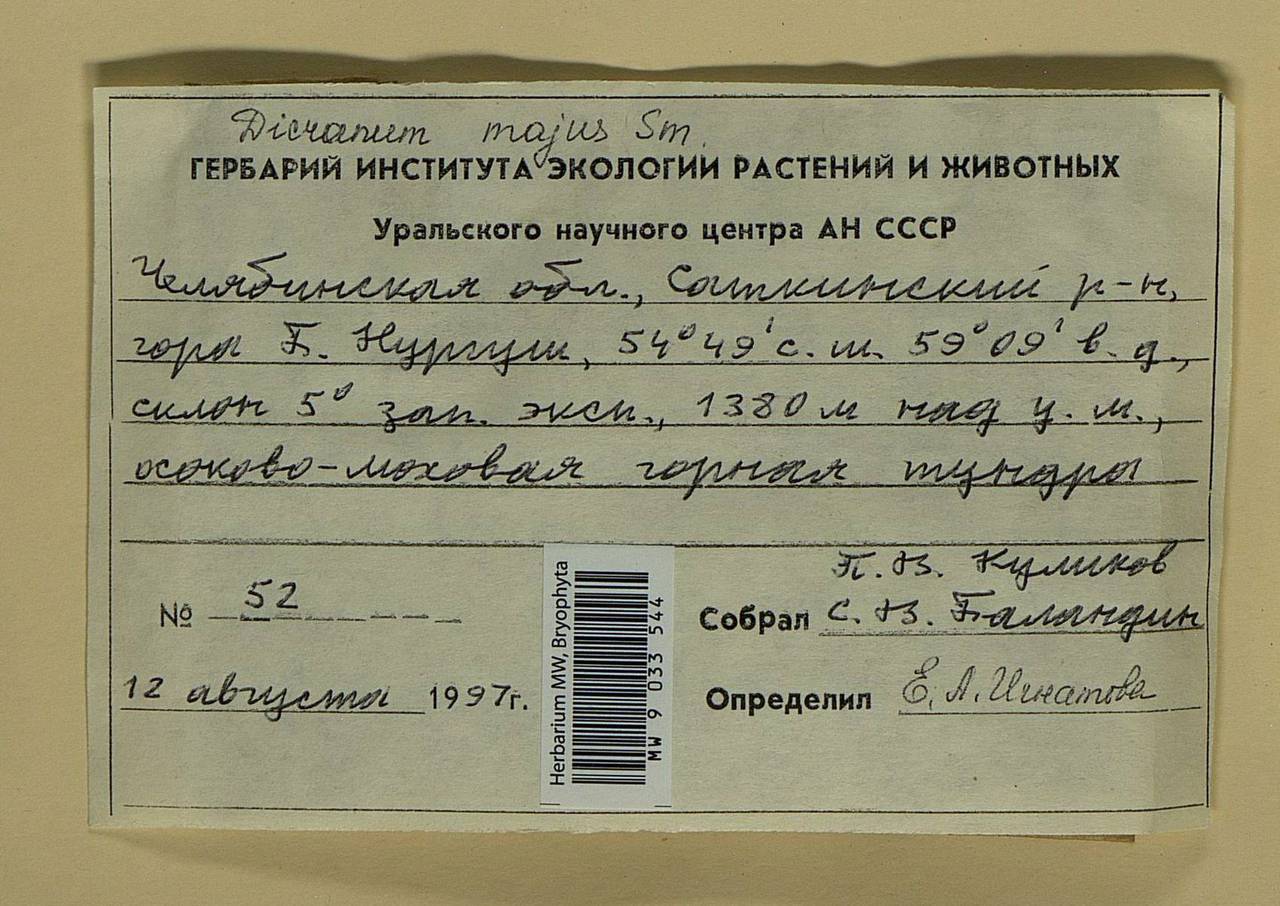 Dicranum majus Sm.
ГЕРБАРИЙ ИНСТИТУТА ЭКОЛОГИИ РАСТЕНИЙ И ЖИВОТНЫХ
Уральского научного центра АН СССР
Челябинская обл., Саткинский р-н,
гора Б. Нургуш, 54°49' с. ш. 59°09' в. д.,
склон 5° зап. эксп., 1380 м над у. м.,
осоково-моховая горная тундра
№ 52
12 августа 1997г.
Herbarium MW, Bryophyta
MW 9 033 544
П. В. Куликов
Собрал С. В. Баландин
Определил Е. А. Игнатова